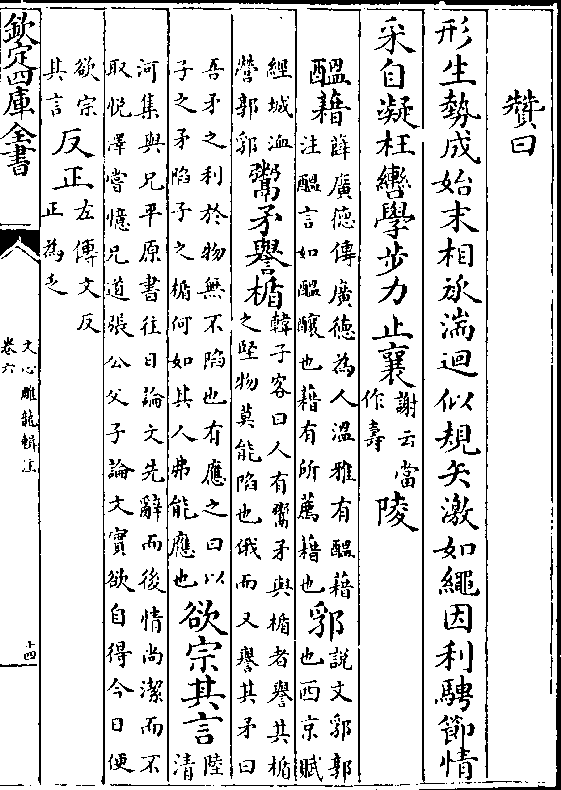 贊曰
形生勢成始末相承湍迴似規矢激如繩因利騁節情
采自凝枉轡學步力止襄謝云當作壽陵
醞藉薛廣德傳廣德為人溫雅有醞藉注醞言如醞釀也藉有所薦藉也郛說文郛郭也西京賦
經城洫營郭郛鬻矛譽楯韓子客曰人有鬻矛與楯者譽其楯之堅物莫能陷也俄而又譽其矛曰
吾矛之利於物無不陷也有應之曰以子之矛陷子之楯何如其人弗能應也欲宗其言陸清
河集與兄平原書往日論文先辭而後情尚潔而不取悅澤嘗憶兄道張公父子論文實欲自得今日便
欲宗其言反正左傳文反正為乏
欽定四庫全書
文心雕龍輯注
卷六
十四